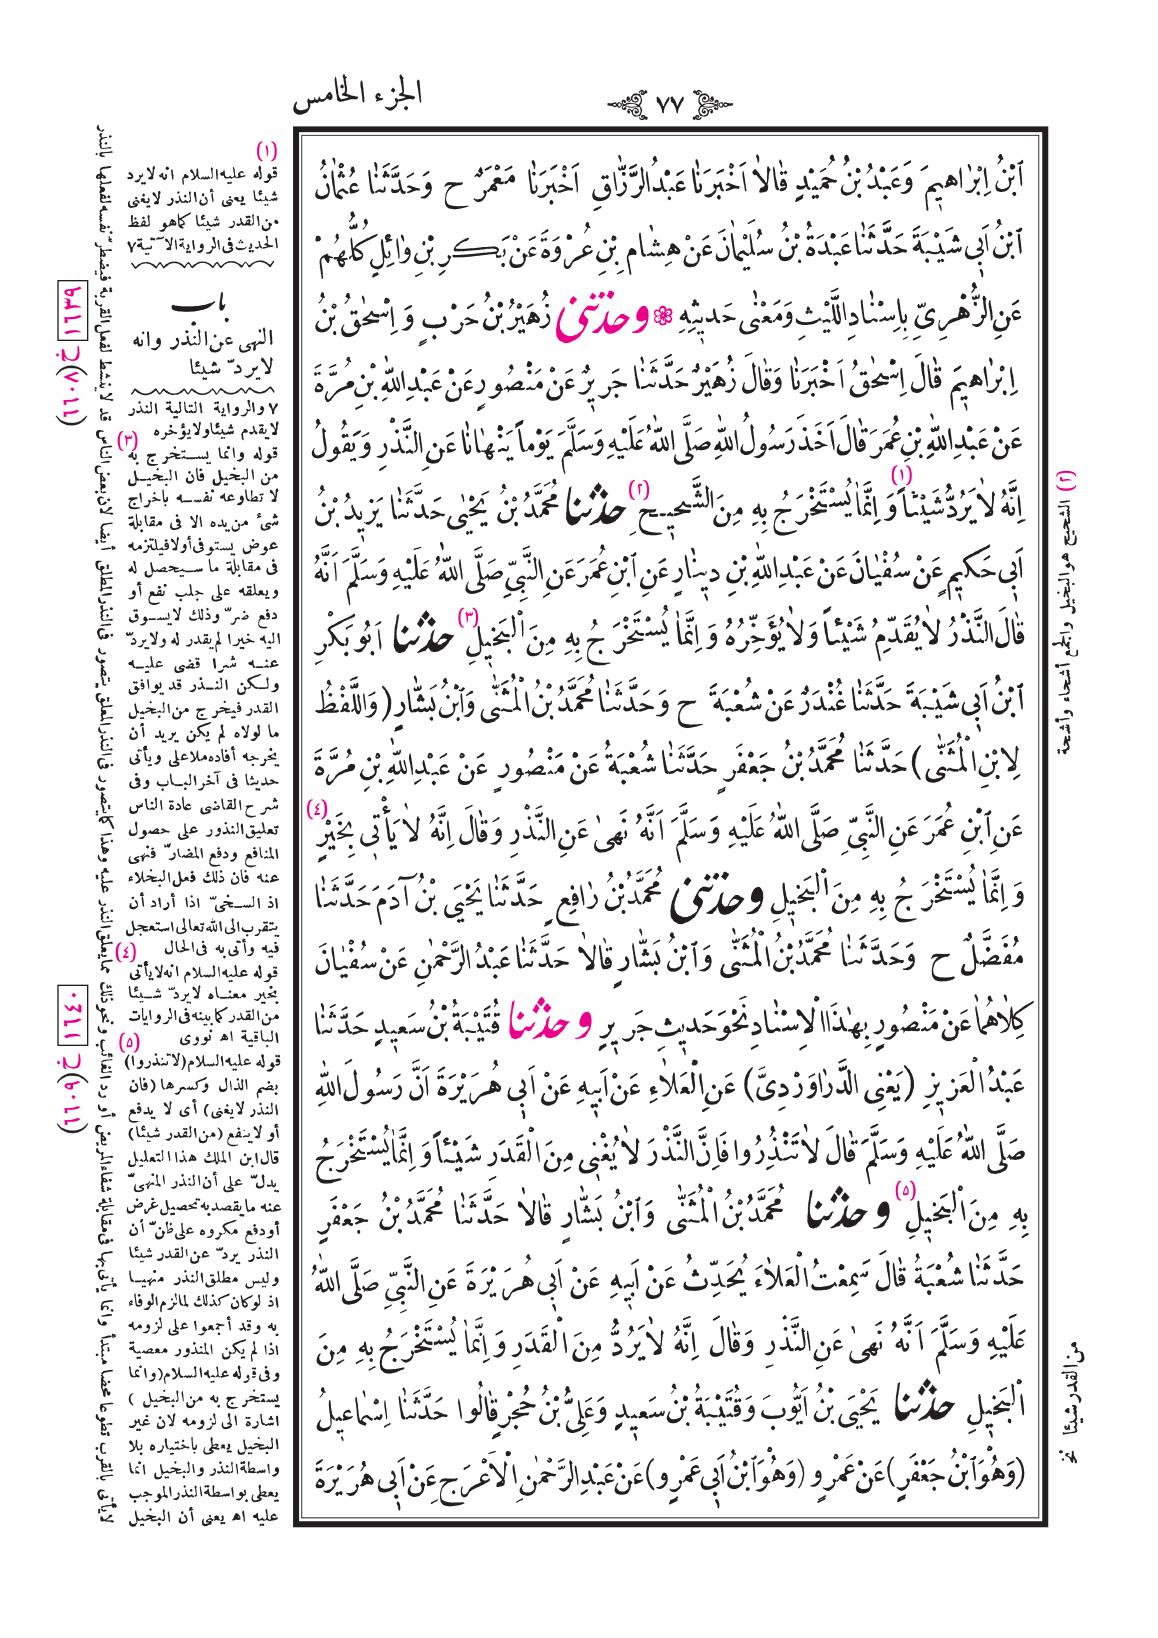 الجزء الخامس
٧٧
اَبْنُ اِبْرٰاهِيمَ وَعَبْدُ بْنُ حُمَيْدٍ قٰالاٰ اَخْبَرَنٰا عَبْدُ الرَّزّٰاقِ اَخْبَرَنٰا مَعْمَرٌ ح وَحَدَّثَنٰا عُثْمٰانُ
ابْنُ اَبِي شَيْبَةَ حَدَّثَنٰا عَبْدَةُ بْنُ سُلَيْمٰانَ عَنْ هِشٰامِ بْنِ عُرْوَةَ عَنْ بَكْرِ بْنِ وٰائِلٍ كُلُّهُمْ
عَنِ الزُّهْرِيِّ بِاِسْنٰادِ اللَّيْثِ وَمَعْنٰى حَديثِهِ وحَدَّثَنِي زُهَيْرُ بْنُ حَرْبٍ وَ اِسْحٰقُ بْنُ
اِبْرٰاهِيمَ قٰالَ اِسْحٰقُ اَخْبَرَنٰا وَقٰالَ زُهَيْرٌ حَدَّثَنٰا جَريرٌ عَنْ مَنْصُورٍ عَنْ عَبْدِ اللهِ بْنِ مُرَّةَ
عَنْ عَبْدِ اللهِ بْنِ عُمَرَ قٰالَ اَخَذَ رَسُولُ اللهِ صَلَّى اللهُ عَلَيْهِ وَسَلَّمَ يَوْماً يَنْهٰانٰا عَنِ النَّذْرِ وَيَقُولُ
اِنَّهُ لاٰ يَرُدُّ شَيْئاً (١) وَ اِنَّمٰا يُسْتَخْرَجُ بِهِ مِنَ الشَّحيحِ (٢) حَدَّثَنَا مُحَمَّدُ بْنُ يَحْيٰى حَدَّثَنٰا يَزيدُ بْنُ
اَبِي حَكيمٍ عَنْ سُفْيٰانَ عَنْ عَبْدِ اللهِ بْنِ دينٰارٍ عَنِ ابْنِ عُمَرَ عَنِ النَّبِيِّ صَلَّى اللهُ عَلَيْهِ وَسَلَّمَ اَنَّهُ
قٰالَ النَّذْرُ لاٰ يُقَدِّمُ شَيْئاً وَلاٰ يُؤَخِّرُهُ وَ اِنَّمٰا يُسْتَخْرَجُ بِهِ مِنَ الْبَخيلِ (٣) حَدَّثَنَا اَبُو بَكْرِ
ابْنُ اَبِي شَيْبَةَ حَدَّثَنٰا غُنْدَرٌ عَنْ شُعْبَةَ ح وَحَدَّثَنٰا مُحَمَّدُ بْنُ الْمُثَنّٰى وَابْنُ بَشّٰارٍ (وَاللَّفْظُ
لِابْنِ الْمُثَنّٰى) حَدَّثَنٰا مُحَمَّدُ بْنُ جَعْفَرٍ حَدَّثَنٰا شُعْبَةُ عَنْ مَنْصُورٍ عَنْ عَبْدِ اللهِ بْنِ مُرَّةَ
عَنِ ابْنِ عُمَرَ عَنِ النَّبِيِّ صَلَّى اللهُ عَلَيْهِ وَسَلَّمَ اَنَّهُ نَهىٰ عَنِ النَّذْرِ وَقٰالَ اِنَّهُ لاٰ يَأْتِي بِخَيْرٍ (٤)
وَ اِنَّمٰا يُسْتَخْرَجُ بِهِ مِنَ الْبَخيلِ وحَدَّثَنِي مُحَمَّدُ بْنُ رٰافِعٍ حَدَّثَنٰا يَحْيَى بْنُ آدَمَ حَدَّثَنٰا
مُفَضَّلٌ ح وَحَدَّثَنٰا مُحَمَّدُ بْنُ الْمُثَنّٰى وَابْنُ بَشّٰارٍ قٰالاٰ حَدَّثَنٰا عَبْدُ الرَّحْمٰنِ عَنْ سُفْيٰانَ
كِلاٰهُمٰا عَنْ مَنْصُورٍ بِهٰذَا الْاِسْنٰادِ نَحْوَ حَديثِ جَريرٍ وحَدَّثَنَا قُتَيْبَةُ بْنُ سَعيدٍ حَدَّثَنٰا
عَبْدُ الْعَزيزِ (يَعْنِي الدَّرٰاوَرْدِيَّ) عَنِ الْعَلاٰءِ عَنْ اَبيهِ عَنْ اَبِي هُرَيْرَةَ اَنَّ رَسُولَ اللهِ
صَلَّى اللهُ عَلَيْهِ وَسَلَّمَ قٰالَ لاٰ تَنْذِرُوا فَاِنَّ النَّذْرَ لاٰ يُغْنِي مِنَ الْقَدَرِ شَيْئاً وَ اِنَّمٰا يُسْتَخْرَجُ
بِهِ مِنَ الْبَخيلِ (٥) وحَدَّثَنَا مُحَمَّدُ بْنُ الْمُثَنّٰى وَابْنُ بَشّٰارٍ قٰالاٰ حَدَّثَنٰا مُحَمَّدُ بْنُ جَعْفَرٍ
حَدَّثَنٰا شُعْبَةُ قٰالَ سَمِعْتُ الْعَلاٰءَ يُحَدِّثُ عَنْ اَبيهِ عَنْ اَبِي هُرَيْرَةَ عَنِ النَّبِيِّ صَلَّى اللهُ
عَلَيْهِ وَسَلَّمَ اَنَّهُ نَهىٰ عَنِ النَّذْرِ وَقٰالَ اِنَّهُ لاٰ يَرُدُّ مِنَ الْقَدَرِ وَ اِنَّمٰا يُسْتَخْرَجُ بِهِ مِنَ
الْبَخيلِ حَدَّثَنَا يَحْيَى بْنُ اَيُّوبَ وَقُتَيْبَةُ بْنُ سَعيدٍ وَعَلِيُّ بْنُ حُجْرٍ قٰالُوا حَدَّثَنٰا اِسْمٰاعيلُ
(وَهُوَ ابْنُ جَعْفَرٍ) عَنْ عَمْرٍو (وَهُوَ ابْنُ اَبِي عَمْرٍو) عَنْ عَبْدِ الرَّحْمٰنِ الْاَعْرَجِ عَنْ اَبِي هُرَيْرَةَ
(١)
قوله عليه السلام انه لا يرد
شيئا يعنى أن النذر لا يغنى
من القدر شيئا كما هو لفظ
الحديث فى الرواية الآتية ٧
باب
النهى عن النذر وانه
لا يردّ شيئا
٧ والرواية التالية النذر
لا يقدم شيئا ولا يؤخره
(٣)
قوله وانما يستخرج به
من البخيل فان البخيل
لا تطاوعه نفسه باخراج
شئ من يده الا فى مقابلة
عوض يستوفى أولا فيلتزمه
فى مقابلة ما سيحصل له
ويعلقه على جلب نفع أو
دفع ضرّ وذلك لا يسوق
اليه خيرا لم يقدر له ولا يردّ
عنه شرا قضى عليه
ولكن النذر قد يوافق
القدر فيخرج من البخيل
ما لولاه لم يكن يريد أن
يخرجه أفاده ملا على ويأتى
حديثا فى آخر الباب وفى
شرح القاضى عادة الناس
تعليق النذور على حصول
المنافع ودفع المضارّ فنهى
عنه فان ذلك فعل البخلاء
اذ السخىّ اذا أراد أن
يتقرب الى الله تعالى استعجل
فيه وأتى به فى الحال
(٤)
قوله عليه السلام انه لا يأتى
بخير معناه لا يردّ شيئا
من القدر كما بينه فى الروايات
الباقية اه نووى
(٥)
قوله عليه السلام (لا تنذروا)
بضم الذال وكسرها (فان
النذر لا يغنى) أى لا يدفع
أو لا ينفع (من القدر شيئا)
قال ابن الملك هذا التعليل
يدلّ على أن النذر المنهىّ
عنه ما يقصد به تحصيل غرض
أو دفع مكروه على ظنّ أن
النذر يردّ عن القدر شيئا
وليس مطلق النذر منهيا
اذ لو كان كذلك لما لزم الوفاء
به وقد أجمعوا على لزومه
اذا لم يكن المنذور معصية
وفى قوله عليه السلام (وانما
يستخرج به من البخيل )
اشارة الى لزومه لان غير
البخيل يعطى باختياره بلا
واسطة النذر والبخيل انما
يعطى بواسطة النذر الموجب
عليه اه يعنى أن البخيل
لا يأتى بالقرب تطوعا محضا مبتدأ وانما يأتى بها فى مقابلة شفاء المريض أو رد الغائب ونحو ذلك مما يعلق النذر عليه وهذا كما يتصور فى النذر المعلق يتصور فى النذر المطلق أيضا لان بعض الناس قد لا ينشط لفعل القربة فيضطرّ نفسه لفعلها بالنذر
(٢) الشحيح هو البخيل والجمع أشحاء وأشحة
من القدر شيئا نخ